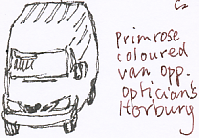 Primrose
coloured
van opp.
optician's
Horbury